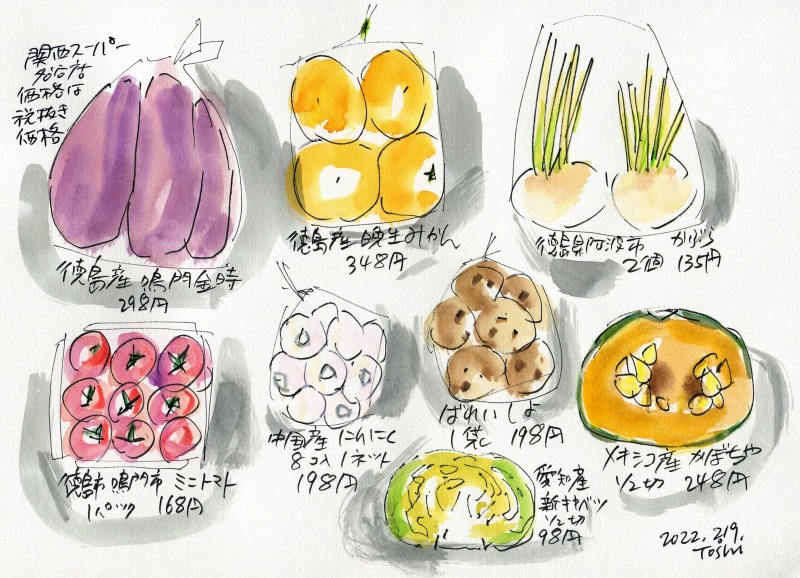 関西スーパー
名谷店
価格は
税抜き
価格
徳島産 鳴門金時
298円
徳島産 晩生みかん
348円
徳島県阿波市 かぶら
2個 135円
徳島市 鳴門市 ミニトマト
1パック 168円
中国産 にんにく
8コ入 1ネット
198円
ばれいしょ
1袋 198円
愛知産
新キャベツ
1/2切
98円
メキシコ産 かぼちゃ
1/2切 248円
2022.2.19.
Toshi